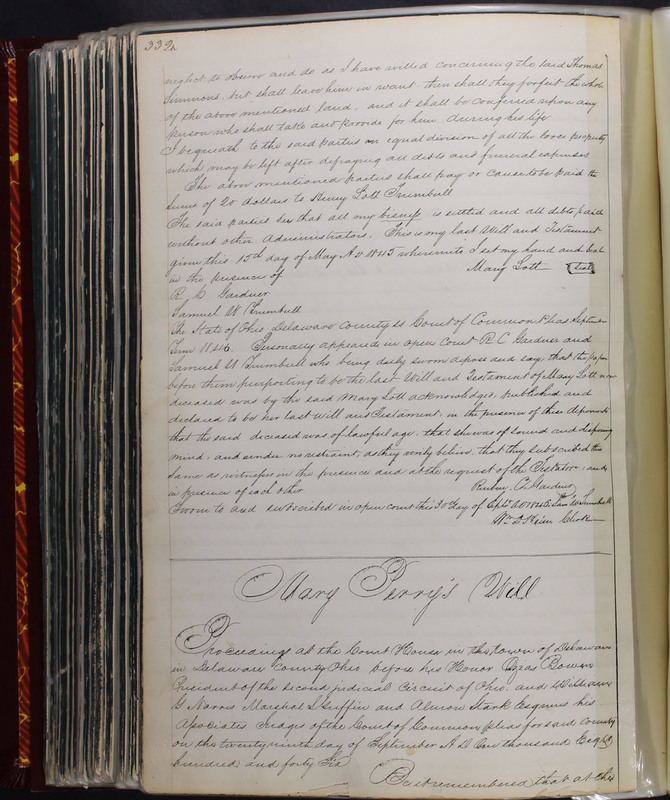 332
neglect to observe and do as I have willed concerning the said Thomas
Simmons, but shall leave him in want then shall they forfeit the whole
of the above mentioned land, and it shall be conferred upon any
person who shall take and provide for him during his life
I bequeath to the said parties an equal division of all the loose property
which may be left after defraying all debts and funeral expenses
The above mentioned parties shall pay or cause to be paid the
sums of 20 dollars to Henry Lott Trumbull
The said parties see that all my bisness is settled and all debts paid
without other Administrators. This is my last Will and Testament
given this 15th day of May AD 1845 whereunto I set my hand and seal
in the presence of Mary Lott Seal
R C Gardner
Samuel W Trumbull
The State of Ohio Delaware County ss Court of Common Pleas September
Term 1846. Personally appeared in open Court R. C Gardner and
Samuel W Trumbull who being duly sworn depose and say, that the paper
before them purporting to be the last Will and Testament of Mary Lott now
deceased was by the said Mary Lott acknowledged, published and
declared to be her last Will and Testament, in the presence of these deponents
that the said deceased was of lawful age, that she was of sound and disposing
mind, and under no restraint, as they verily believe, that they subscribed the
same as witnesses in the presence and at the request of the Testator, and
in presence of each other
Reuben C Gardner
Sworn to and subscribed in open court this 30th day of Sept. AD 1846 Sam W Trumbull
Wm D Heim Clerk
Mary Perry's Will
Proceedings at the Court House in the town of Delaware
in Delaware County Ohio before his Honor Ozias Bowen
President of the second judicial Circuit of Ohio, and William
G Norris Marshal L Griffin and Almon Stark Esquires his
Associates Judges of the Court of Common pleas for said County
on the twenty ninth day of September A D One thousand Eight
hundred and forty Six
Be it remembered that at the